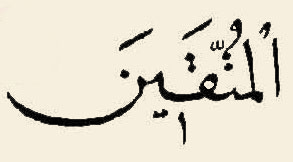 ٱلمُتَّقِينَ